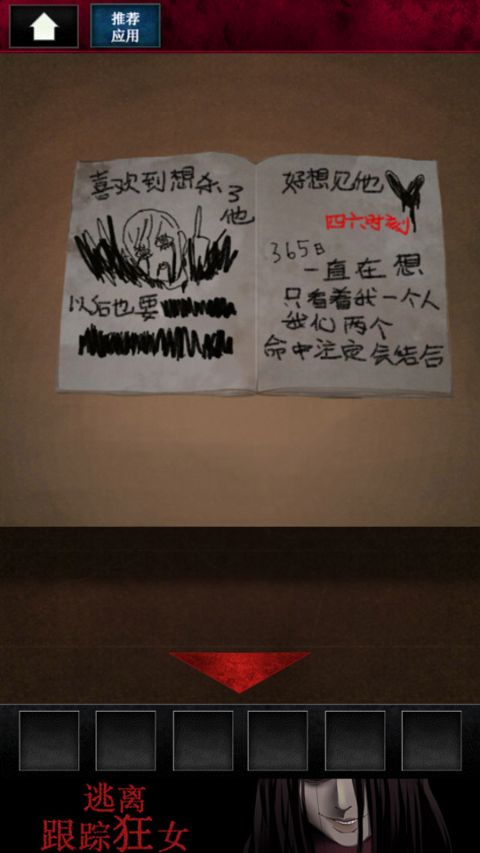 推荐
应用
喜欢到想杀了
他
以后也要
好想见他
四六时刻
365日
一直在想
只看着我一个人
我们两个
命中注定会结合
逃离
跟踪狂女